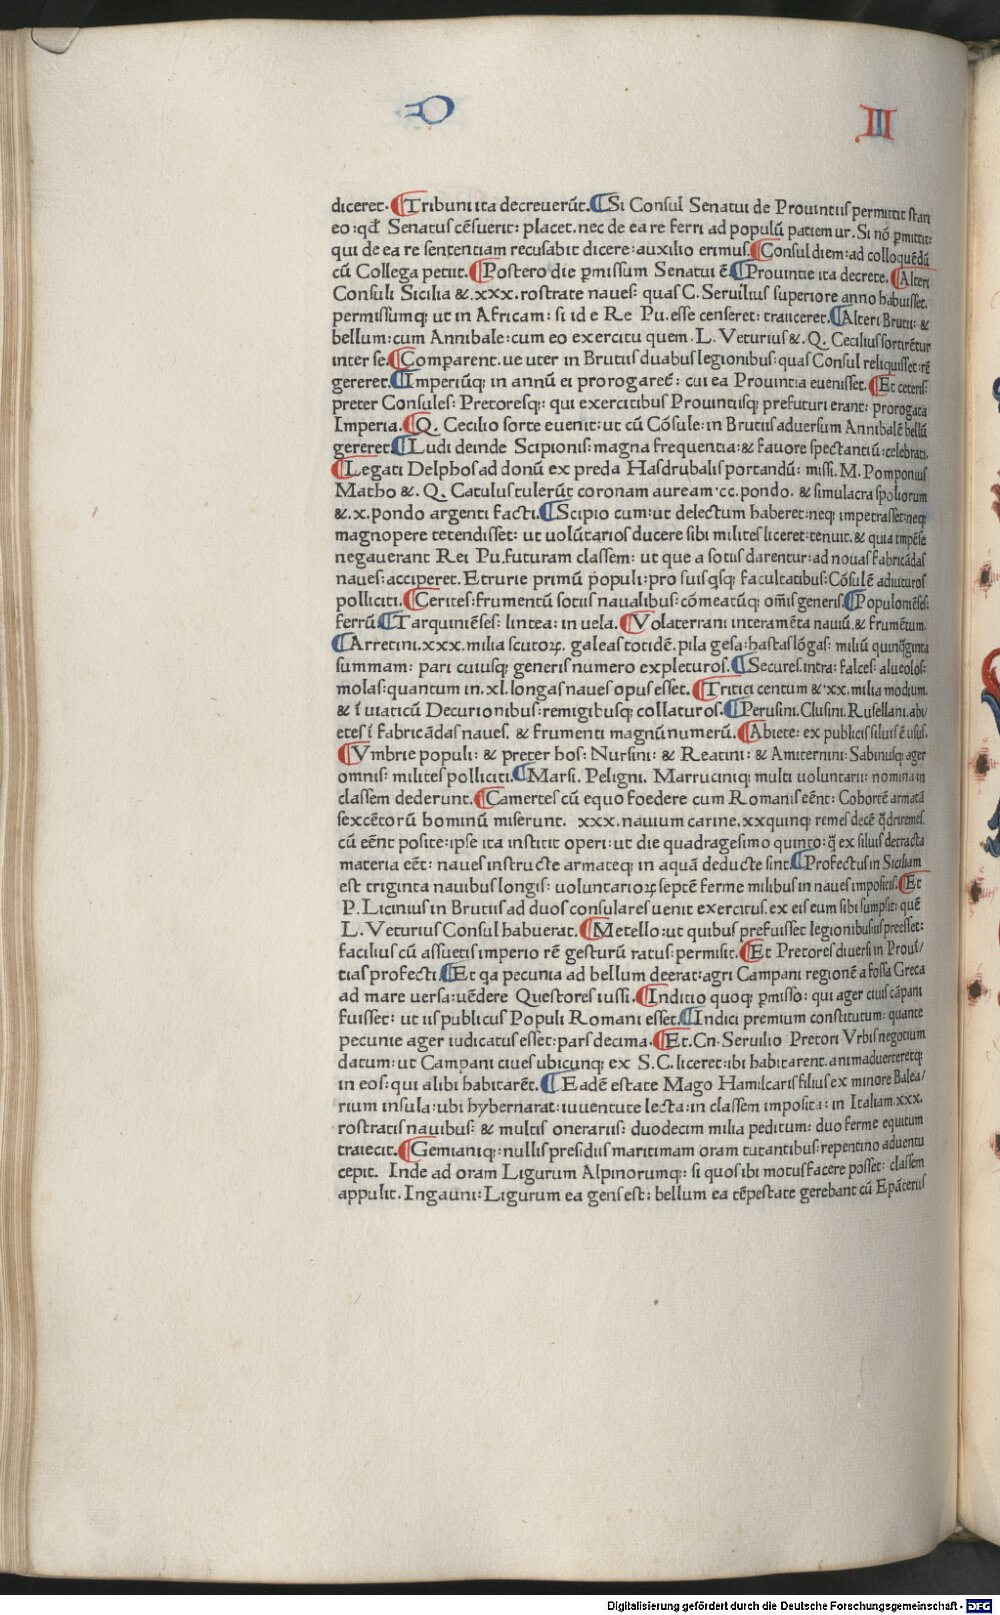 D III
diceret. Tribuni ita decreuerũt. Si Consul Senatui de Prouintiis permittit stari
eo: qđ Senatus cẽsuerit: placet. nec de ea re ferri ad populũ patiemur. Si nõ pmittit:
qui de ea re sententiam recusabit dicere: auxilio erimus. Consul diem: ad colloquẽdũ
cũ Collega petiit. Postero die pmissum Senatui ẽ. Prouintie ita decrete. Alteri
Consuli Sicilia &. xxx. rostrate naues: quas C. Seruilius superiore anno habuisset.
permissumq; ut in Africam: si id e Re Pu. esse censeret: traiiceret. Alteri Brutii: &
bellum: cum Annibale: cum eo exercitu quem. L. Veturius &. Q. Cecilius sortirẽtur
inter se. Comparent. ue uter in Brutiis duabus legionibus: quas Consul reliquisset: rẽ
gereret. Imperiũq; in annũ ei prorogaret̃: cui ea Prouintia euenisset. Et ceteris:
preter Consules: Pretoresq;: qui exercitibus Prouintiisq; prefuturi erant: prorogata
Imperia. Q. Cecilio sorte euenit: ut cũ Cõsule: in Brutiis aduersum Annibalẽ bellũ
gereret. Ludi deinde Scipionis: magna frequentia: & fauore spectantiũ: celebrati.
Legati Delphos ad donũ ex preda Hasdrubalis portandũ: missi. M. Pomponius
Matho &. Q. Catulus tulerũt coronam auream. cc. pondo. & simulacra spoliorum
&. x. pondo argenti facti. Scipio cum: ut delectum haberet: neq; impetrasset: neq;
magnopere tetendisset: ut uolũtarios ducere sibi milites liceret: tenuit. & quia impẽse
negauerant Rei Pu. futuram classem: ut que a sotiis darentur: ad nouas fabricãdas
naues: acciperet. Etrurie primũ populi: pro suis qsq; facultatibus: Cõsulẽ adiuturos
polliciti. Cerites: frumentũ sotiis naualibus: cõmeatũq; om̃is generis. Populoniẽses:
ferrũ. Tarquiniẽses: lintea: in uela. Volaterrani interamẽta nauiũ. & frumẽtum.
Arretini. xxx. milia scutoꝝ. galeas totidẽ. pila gesa: hastas lõgas: miliũ quinq̃ginta
summam: pari cuiusq; generis numero expleturos. Secures. intra: falces: alueolos:
molas: quantum in. xl. longas naues opus esset. Tritici centum &. xx. milia modium.
& ĩ uiaticũ Decurionibus: remigibusq; collaturos. Perusini. Clusini. Rusellani. abi/
etes ĩ fabricãdas naues. & frumenti magnũ numerũ. Abiete: ex publicis siluis ẽ usus.
Vmbrie populi: & preter hos: Nursini: & Reatini: & Amiternini: Sabinusq; ager
omnis: milites polliciti. Marsi. Peligni. Marruciniq; multi uoluntarii: nomina in
classem dederunt. Camertes cũ equo foedere cum Romanis eẽnt: Cohortẽ armatã
sexcẽtorũ hominũ miserunt. xxx. nauium carine. xx quinq; remes decẽ q̃driremes.
cũ eẽnt posite: ipse ita institit operi: ut die quadragesimo quinto: q̃ ex siluis detracta
materia eẽt: naues instructe armateq; in aquã deducte sint. Profectus in Siciliam
est triginta nauibus longis: uoluntarioꝝ septẽ ferme milibus in naues impositis. Et
P. Licinius in Brutiis ad duos consulares uenit exercitus. ex eis eum sibi sumpsit: quẽ
L. Veturius Consul habuerat. Metello: ut quibus prefuisset legionibus: iis preesset:
facilius cũ assuetis imperio rẽ gesturũ ratus: permisit. Et Pretores diuersi in Prouĩ/
tias profecti. Et qa pecunia ad bellum deerat: agri Campani regionẽ a fossa Greca
ad mare uersa: uẽdere Questores iussi. Inditio quoq; pmisso: qui ager ciuis cãpani
fuisset: ut iis publicus Populi Romani esset. Indici premium constitutum: quante
pecunie ager iudicatus esset: pars decima. Et. Cn. Seruilio Pretori Vrbis negotium
datum: ut Campani ciues ubicunq; ex S. C. liceret: ibi habitarent. animaduerteretq;
in eos: qui alibi habitarẽt. Eadẽ estate Mago Hamilcaris filius ex minore Balea/
rium insula: ubi hybernarat: iuuentute lecta: in classem imposita: in Italiam. xxx.
rostratis nauibus: & multis onerariis: duodecim milia peditum: duo ferme equitum
traiecit. Gemianiq;: nullis presidiis maritimam oram tutantibus: repentino aduentu
cepit. Inde ad oram Ligurum Alpinorumq;: si quos ibi motus facere posset: classem
appulit. Ingauni: Ligurum ea gens est: bellum ea tẽpestate gerebant cũ Epãteriis
Digitalisierung gefördert durch die Deutsche Forschungsgemeinschaft - DFG